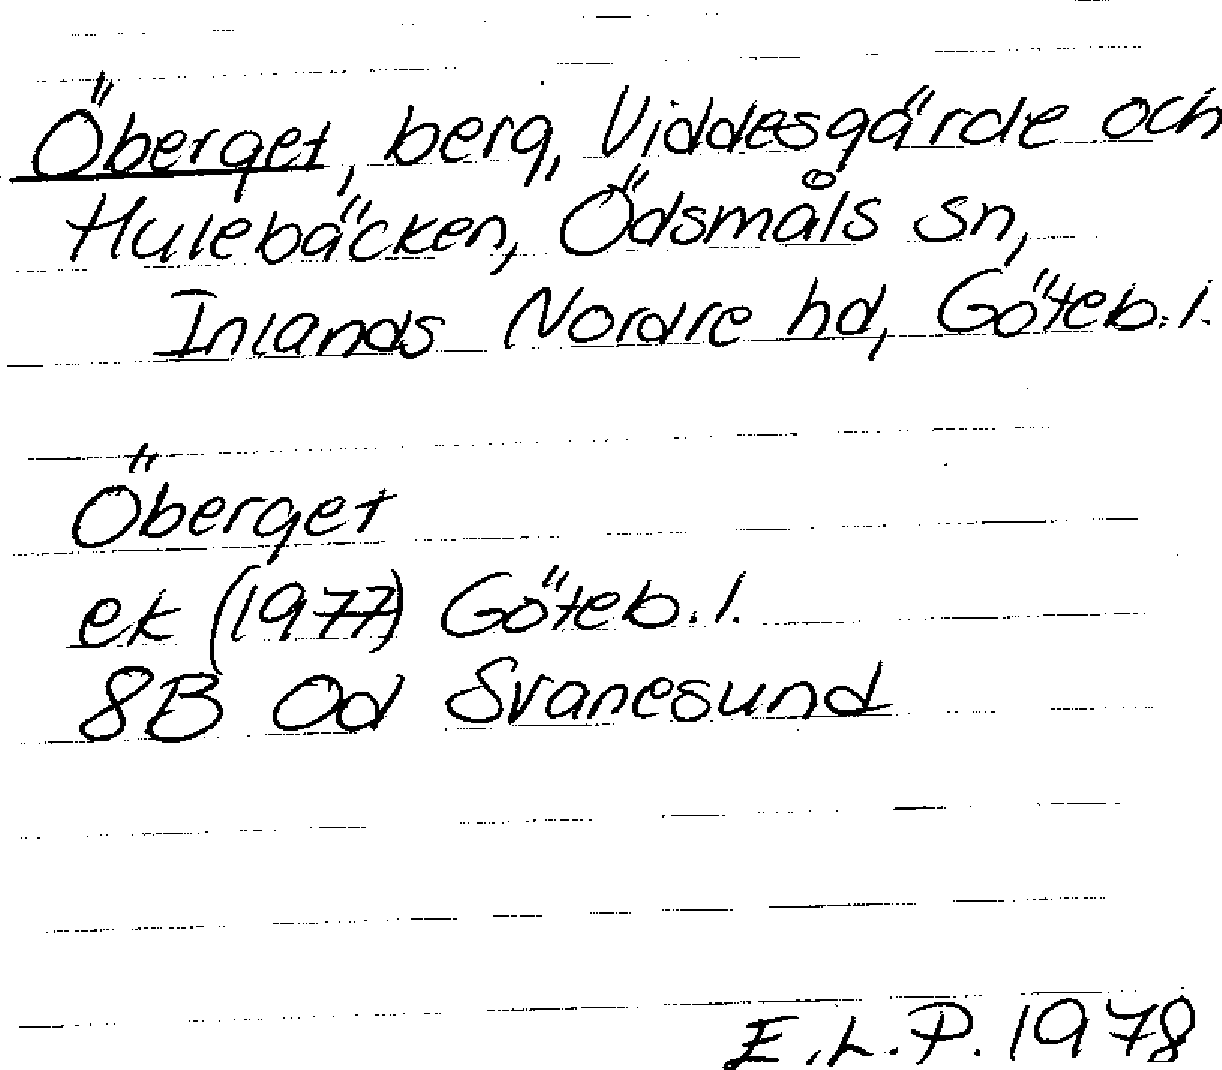 Öberget, berg, Viddesgärde och
Hulebäcken, Ödsmåls sn,
Inlands Nordre hd, Göteb.l.
Öberget
ek (1977) Göteb.l.
8B 0d Svanesund
E.L.P. 1978